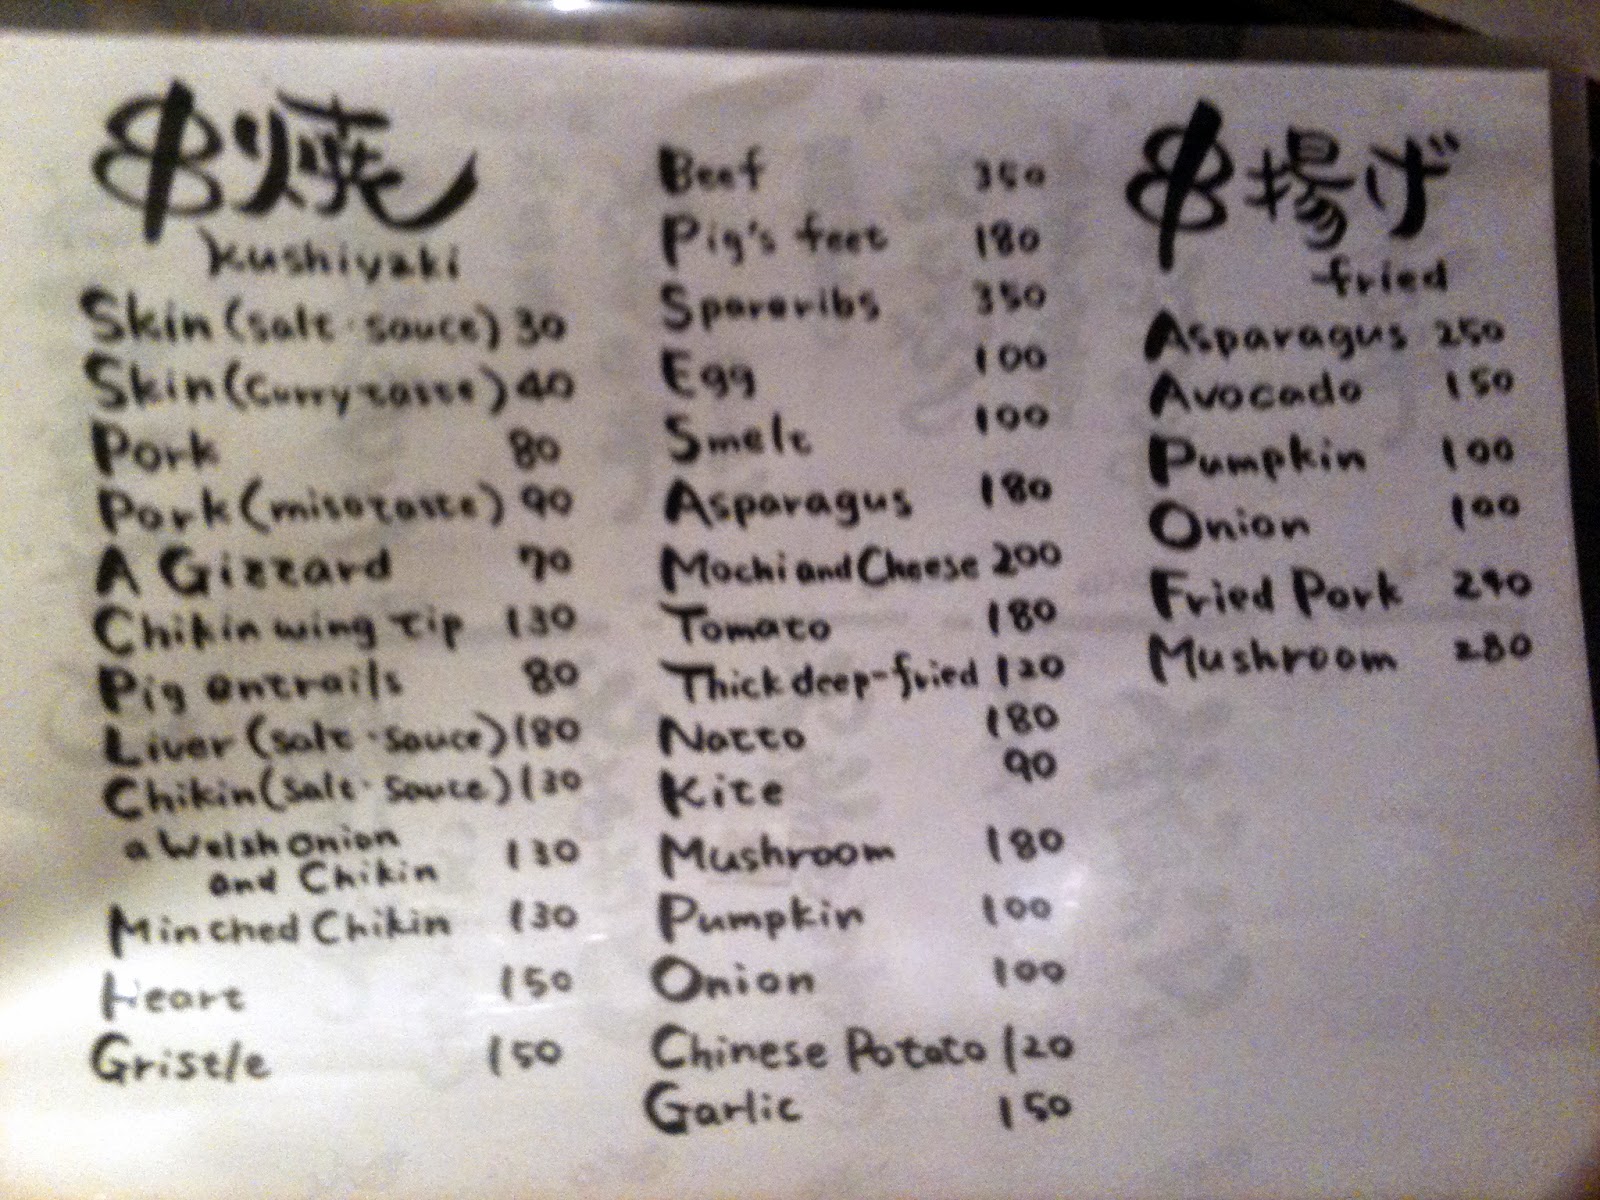 串焼
kushiyaki
Skin (salt・sauce) 30
Skin (Curry taste) 40
Pork 80
Pork (miso taste) 90
A Gizzard 70
Chikin wing tip 130
Pig entrails 80
Liver (salt・sauce) 180
Chikin (salt・sauce) 130
a Welsh onion
and Chikin 130
Minched Chikin 130
Heart 150
Gristle 150
Beef 350
Pig's feet 180
Spareribs 350
Egg 100
Smelt 100
Asparagus 180
Mochi and Cheese 200
Tomato 180
Thick deep-fried 120
Natto 180
Kite 90
Mushroom 180
Pumpkin 100
Onion 100
Chinese Potato 120
Garlic 150
串揚げ
fried
Asparagus 250
Avocado 150
Pumpkin 100
Onion 100
Fried Pork 240
Mushroom 280